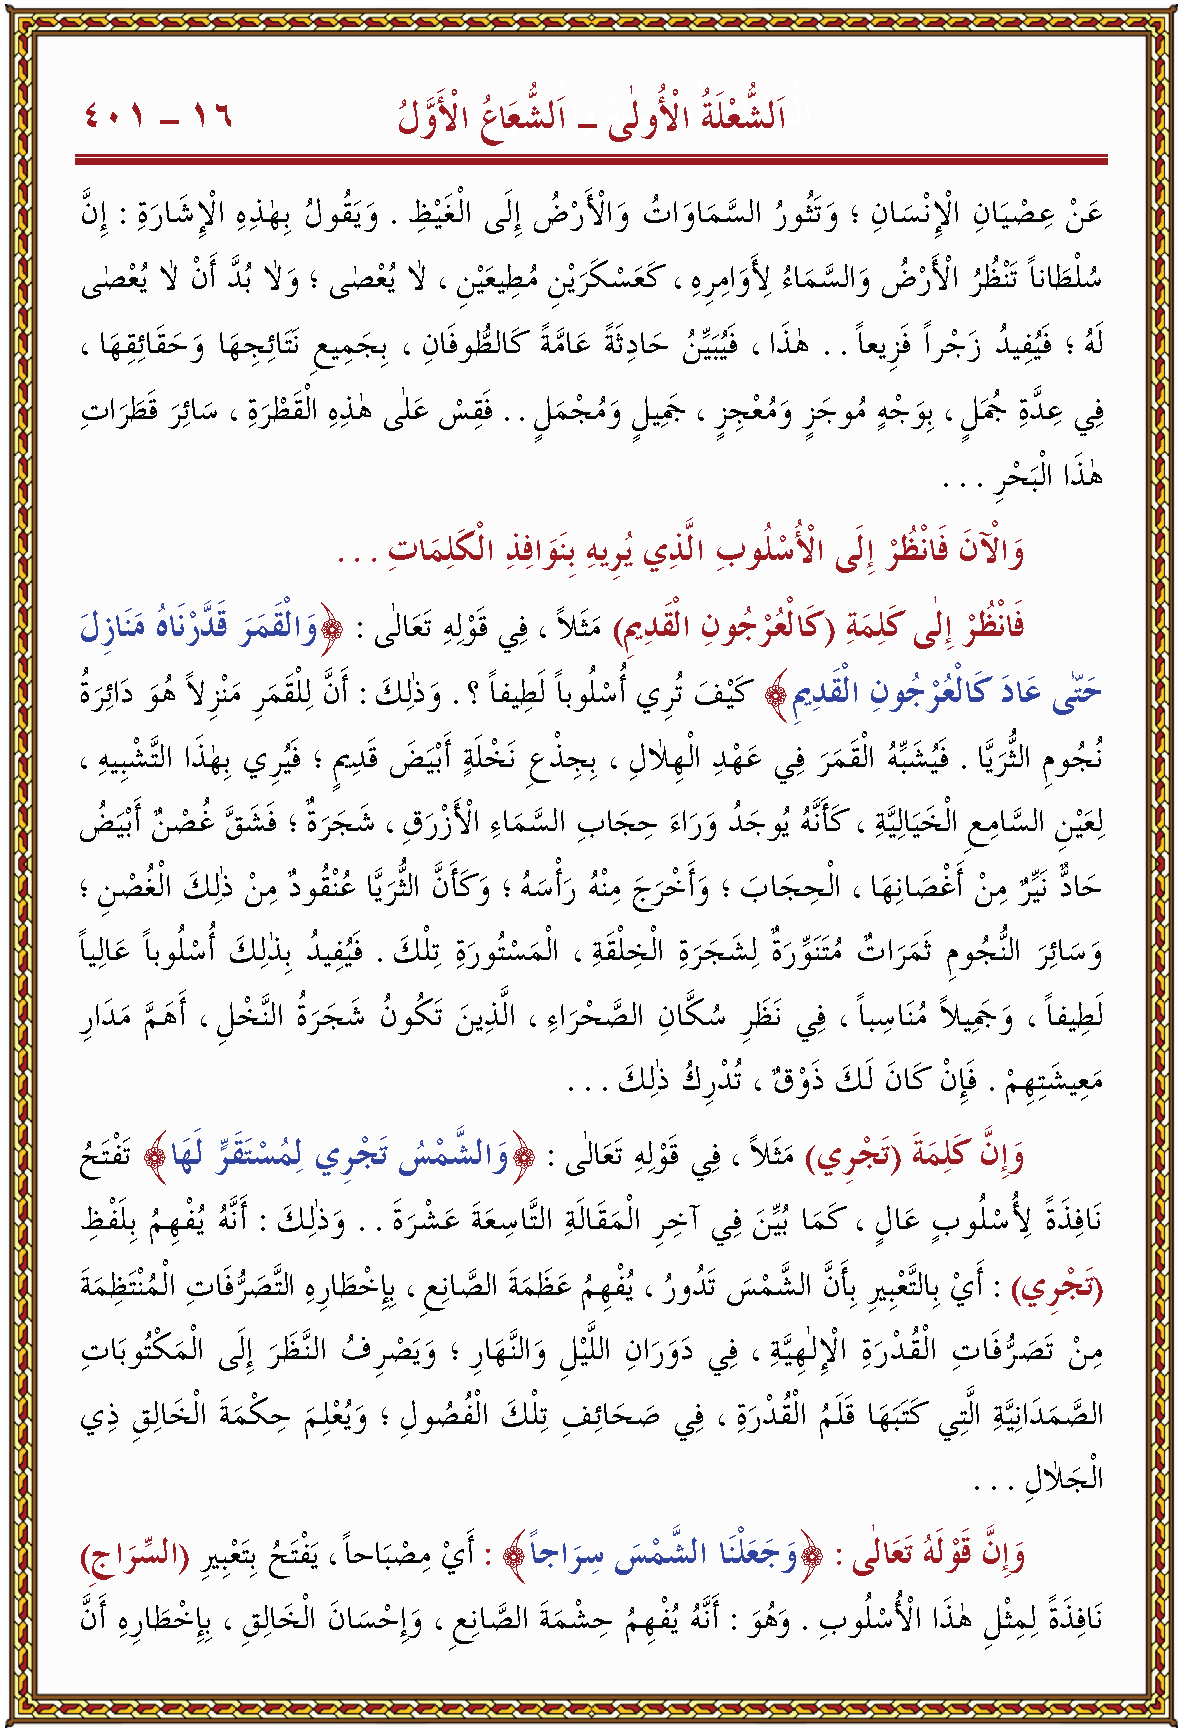 اَلشُّعْلَةُ الْأُولٰى – اَلشُّعَاعُ الْأَوَّلُ ١٦ – ٤٠١
عَنْ عِصْيَانِ الْإِنْسَانِ ؛ وَتُثُورُ السَّمَاوَاتُ وَالْأَرْضُ إِلَى الْغَيْظِ . وَيَقُولُ بِهٰذِهِ الْإِشَارَةِ : إِنَّ
سُلْطَاناً تَنْظُرُ الْأَرْضُ وَالسَّمَاءُ لِأَوَامِرِهِ ، كَعَسْكَرَيْنِ مُطِيعَيْنِ ، لَا يُعْصٰى ؛ وَلَا بُدَّ أَنْ لَا يُعْصٰى
لَهُ ؛ فَيُفِيدُ زَجْراً فَزِيعاً . . هٰذَا ، فَيُبَيِّنُ حَادِثَةً عَامَّةً كَالطُّوفَانِ ، بِجَمِيعِ نَتَائِجِهَا وَحَقَائِقِهَا ،
فِي عِدَّةِ جُمَلٍ ، بِوَجْهٍ مُوجَزٍ وَمُعْجِزٍ ، جَمِيلٍ وَمُجْمَلٍ . . فَقِسْ عَلٰى هٰذِهِ الْقَطْرَةِ ، سَائِرَ قَطَرَاتِ
هٰذَا الْبَحْرِ . . .
وَالْآنَ فَانْظُرْ إِلَى الْأُسْلُوبِ الَّذِي يُرِيهِ بِنَوَافِذِ الْكَلِمَاتِ . . .
فَانْظُرْ إِلٰى كَلِمَةِ (كَالْعُرْجُونِ الْقَدِيمِ) مَثَلاً ، فِي قَوْلِهِ تَعَالٰى : ﴿وَالْقَمَرَ قَدَّرْنَاهُ مَنَازِلَ
حَتّٰى عَادَ كَالْعُرْجُونِ الْقَدِيمِ﴾ كَيْفَ تُرِي أُسْلُوباً لَطِيفاً ؟ . وَذٰلِكَ : أَنَّ لِلْقَمَرِ مَنْزِلاً هُوَ دَائِرَةُ
نُجُومِ الثُّرَيَّا . فَيُشَبِّهُ الْقَمَرَ فِي عَهْدِ الْهِلَالِ ، بِجِذْعِ نَخْلَةٍ أَبْيَضَ قَدِيمٍ ؛ فَيُرِي بِهٰذَا التَّشْبِيهِ ،
لِعَيْنِ السَّامِعِ الْخَيَالِيَّةِ ، كَأَنَّهُ يُوجَدُ وَرَاءَ حِجَابِ السَّمَاءِ الْأَزْرَقِ ، شَجَرَةٌ ؛ فَشَقَّ غُصْنٌ أَبْيَضُ
حَادٌّ نَيِّرٌ مِنْ أَغْصَانِهَا ، الْحِجَابَ ؛ وَأَخْرَجَ مِنْهُ رَأْسَهُ ؛ وَكَأَنَّ الثُّرَيَّا عُنْقُودٌ مِنْ ذٰلِكَ الْغُصْنِ ؛
وَسَائِرَ النُّجُومِ ثَمَرَاتٌ مُتَنَوِّرَةٌ لِشَجَرَةِ الْخِلْقَةِ ، الْمَسْتُورَةِ تِلْكَ . فَيُفِيدُ بِذٰلِكَ أُسْلُوباً عَالِياً
لَطِيفاً ، وَجَمِيلاً مُنَاسِباً ، فِي نَظَرِ سُكَّانِ الصَّحْرَاءِ ، الَّذِينَ تَكُونُ شَجَرَةُ النَّخْلِ ، أَهَمَّ مَدَارِ
مَعِيشَتِهِمْ . فَإِنْ كَانَ لَكَ ذَوْقٌ ، تُدْرِكُ ذٰلِكَ . . .
وَإِنَّ كَلِمَةَ (تَجْرِي) مَثَلاً ، فِي قَوْلِهِ تَعَالٰى : ﴿وَالشَّمْسُ تَجْرِي لِمُسْتَقَرٍّ لَهَا﴾ تَفْتَحُ
نَافِذَةً لِأُسْلُوبٍ عَالٍ ، كَمَا بُيِّنَ فِي آخِرِ الْمَقَالَةِ التَّاسِعَةَ عَشْرَةَ . . وَذٰلِكَ : أَنَّهُ يُفْهِمُ بِلَفْظِ
(تَجْرِي) : أَيْ بِالتَّعْبِيرِ بِأَنَّ الشَّمْسَ تَدُورُ ، يُفْهِمُ عَظَمَةَ الصَّانِعِ ، بِإِخْطَارِهِ التَّصَرُّفَاتِ الْمُنْتَظِمَةَ
مِنْ تَصَرُّفَاتِ الْقُدْرَةِ الْإِلٰهِيَّةِ ، فِي دَوَرَانِ اللَّيْلِ وَالنَّهَارِ ؛ وَيَصْرِفُ النَّظَرَ إِلَى الْمَكْتُوبَاتِ
الصَّمَدَانِيَّةِ الَّتِي كَتَبَهَا قَلَمُ الْقُدْرَةِ ، فِي صَحَائِفِ تِلْكَ الْفُصُولِ ؛ وَيُعْلِمُ حِكْمَةَ الْخَالِقِ ذِي
الْجَلَالِ . . .
وَإِنَّ قَوْلَهُ تَعَالٰى : ﴿وَجَعَلْنَا الشَّمْسَ سِرَاجاً﴾ : أَيْ مِصْبَاحاً ، يَفْتَحُ بِتَعْبِيرِ (السِّرَاجِ)
نَافِذَةً لِمِثْلِ هٰذَا الْأُسْلُوبِ . وَهُوَ : أَنَّهُ يُفْهِمُ حِشْمَةَ الصَّانِعِ ، وَإِحْسَانَ الْخَالِقِ ، بِإِخْطَارِهِ أَنَّ